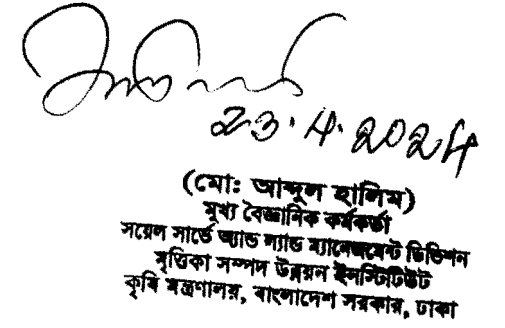 23.4.2024
(মো: আব্দুল হালিম)
মুখ্য বৈজ্ঞানিক কর্মকর্তা
সয়েল সার্ভে অ্যান্ড ল্যান্ড ম্যানেজমেন্ট ডিভিশন
মৃত্তিকা সম্পদ উন্নয়ন ইনস্টিটিউট
কৃষি মন্ত্রণালয়, বাংলাদেশ সরকার, ঢাকা